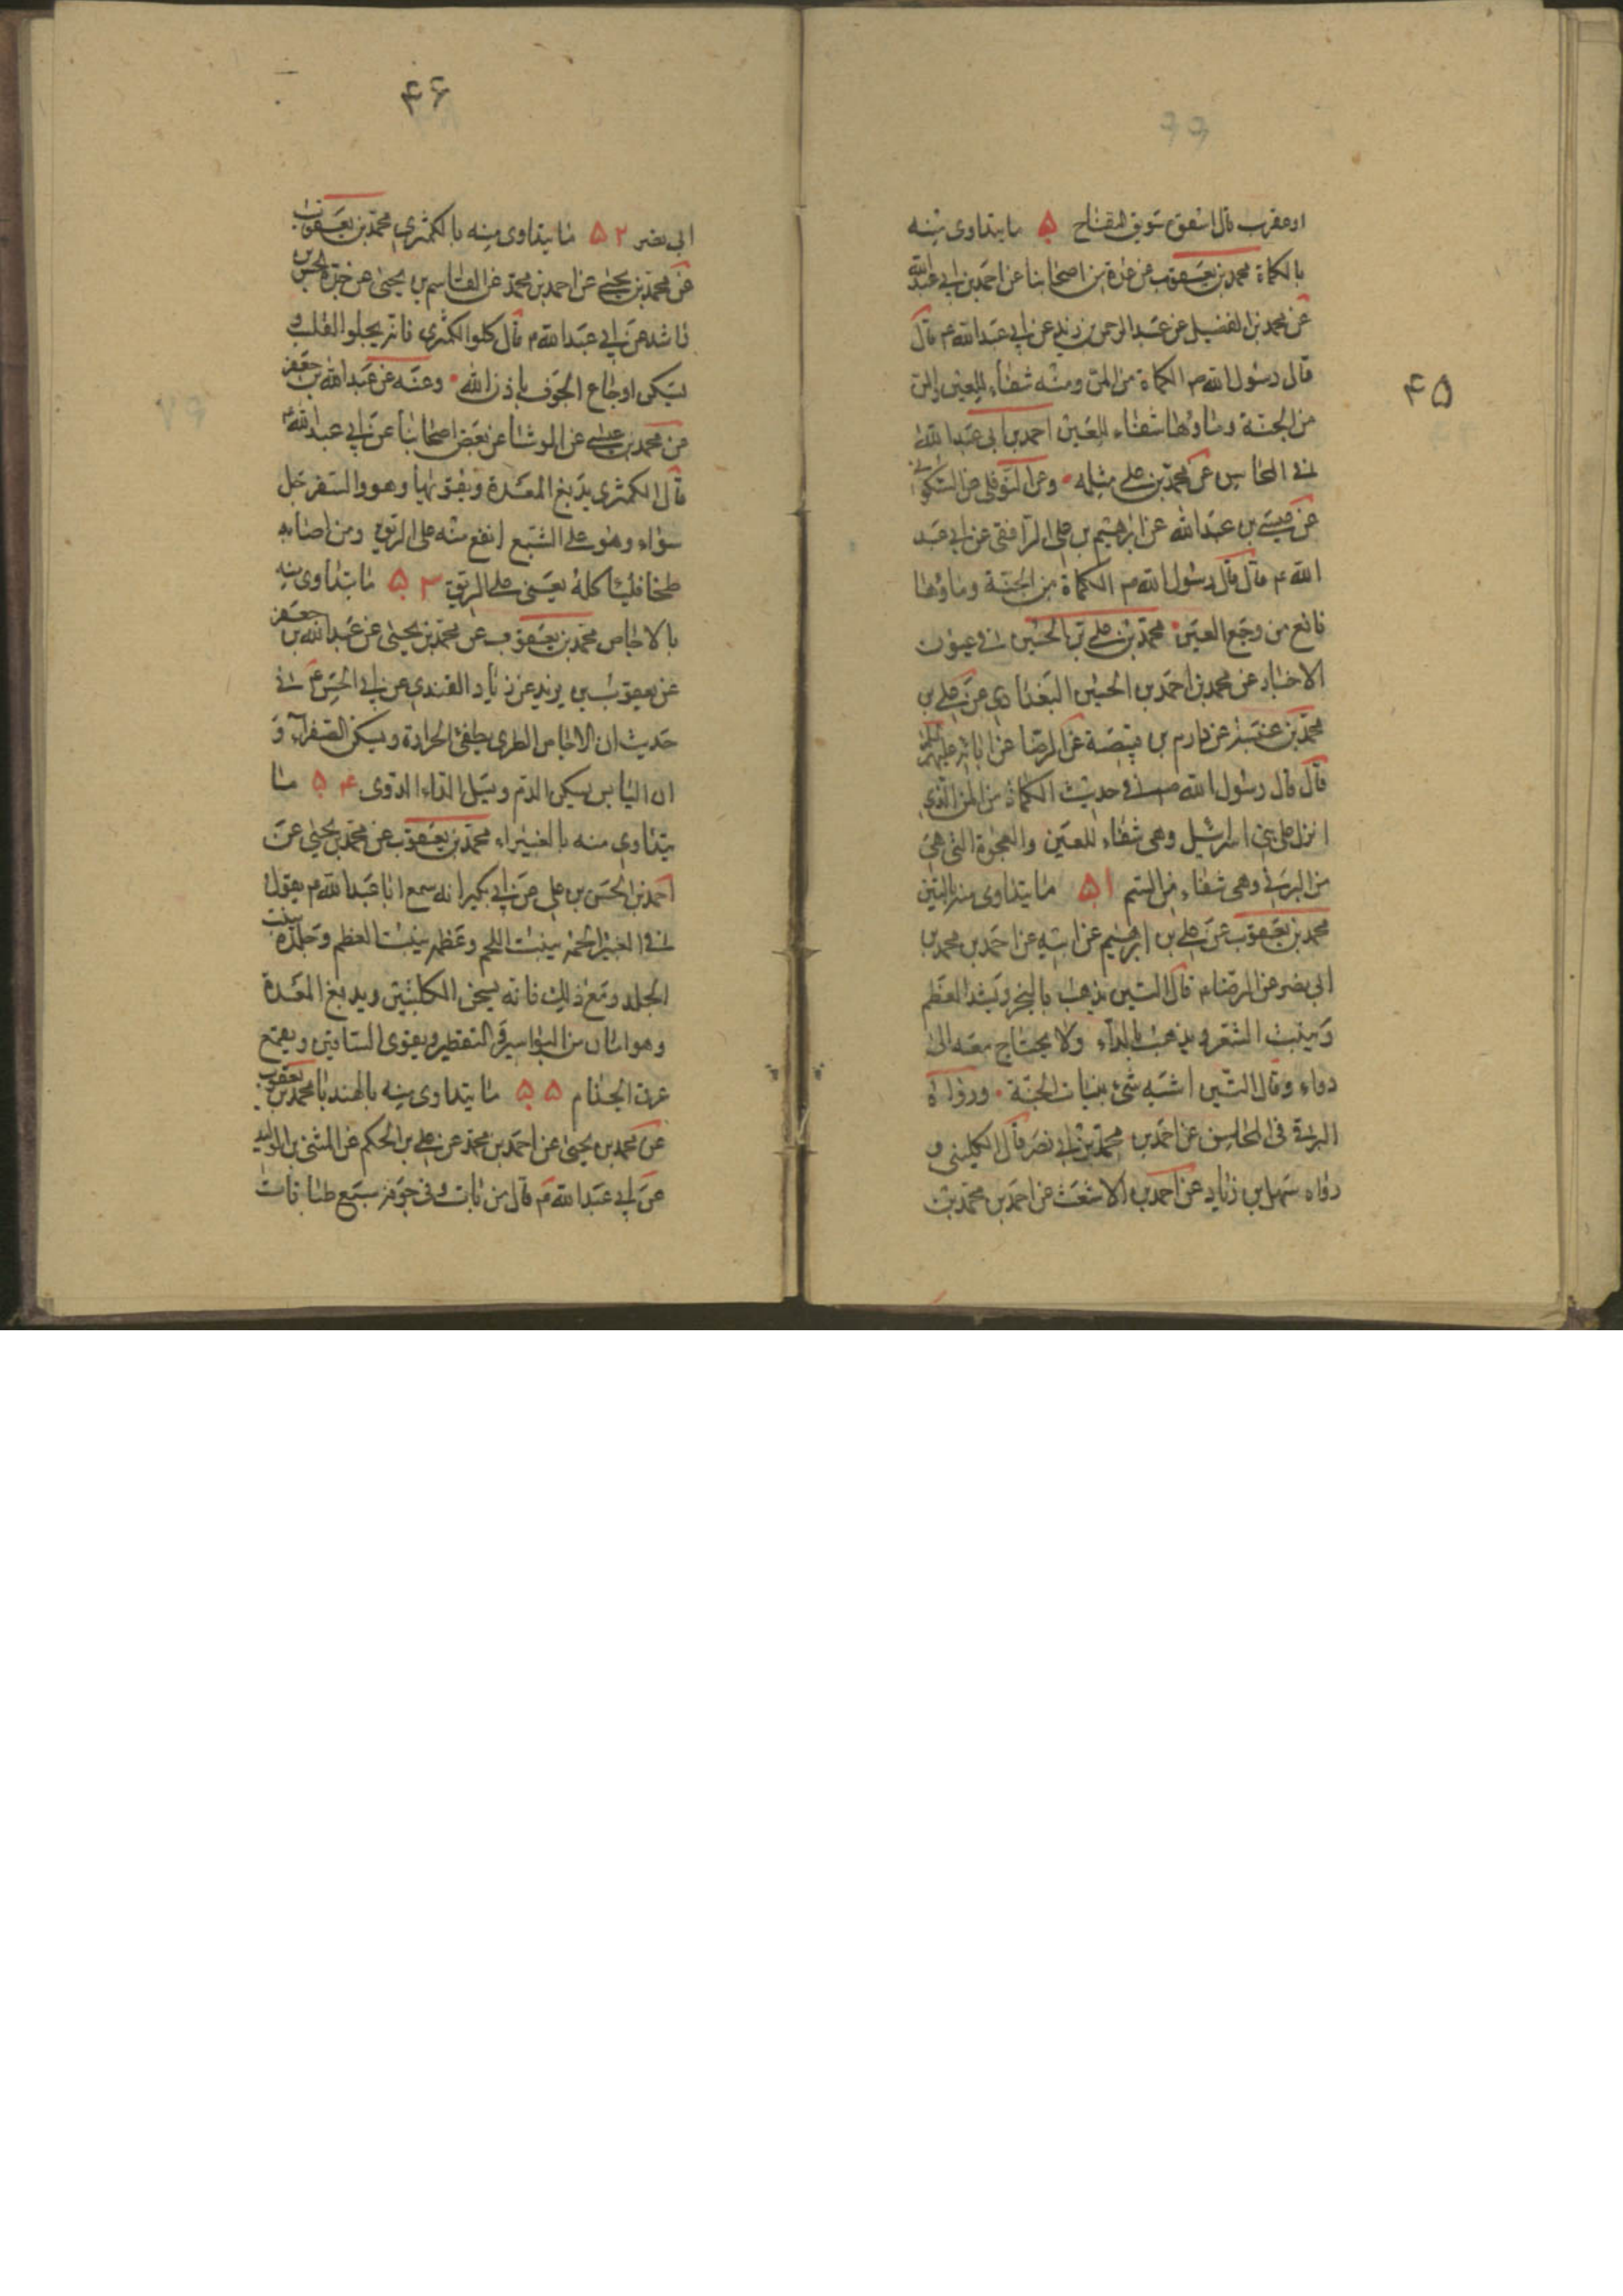 ۴۵
او عقرب قال اسقوه سويق التفاح ۵۰ ما يتداوى منه
بالكماة محمد بن يعقوب عن عدة من اصحابنا عن احمد بن ابي عبد الله
عن محمد بن الفضيل عن عبد الرحمن بن زيد عن ابي عبد الله ع قال
قال رسول الله ص الكماة من المن ومنه شفاء للعين والمن
من الجنة وماؤها شفاء للعين احمد بن ابى عبد الله
فى المحاسن عن محمد بن على مثله وعن النوفلى عن السكونى
عن عيسى بن عبد الله عن ابرهيم بن على الرافقى عن ابي عبد
الله ع قال قال رسول الله ص الكماة من الجنة وماؤها
نافع من وجع العين محمد بن على بن الحسين فى عيون
الاخبار عن محمد بن احمد بن الحسين البغدادى عن على بن
محمد بن عنبسة عن دارم بن قبيصة عن الرضا عن ابائه عليهم السلم
قال قال رسول الله ص فى حديث الكماة من المن الذي
انزل على بنى اسرائيل وهى شفاء للعين والعجوة التى هى
من البرنى وهى شفاء من السم ۵۱ ما يتداوى منه بالتين
محمد بن يعقوب عن على بن ابرهيم عن ابيه عن احمد بن محمد بن
ابى نصر عن الرضا ع قال التين يذهب بالبخر ويشد العظم
وينبت الشعر ويذهب بالداء ولا يحتاج معه الى
دواء وقال التين اشبه شئ بنبات الجنة ورواه
البرقى فى المحاسن عن احمد بن محمد بن ابى نصر قال الكلينى و
رواه سهل بن زياد عن احمد بن الاشعث عن احمد بن محمد بن
۴۶
ابى نصر ۵۲ ما يتداوى منه بالكمثرى محمد بن يعقوب
عن محمد بن يحيى عن احمد بن محمد عن القاسم بن يحيى عن جده الحسن بن
راشد عن ابي عبد الله ع قال كلوا الكمثرى فانه يجلو القلب و
يسكن اوجاع الجوف باذن الله وعنه عن عبد الله بن جعفر
عن محمد بن عيسى عن الوشا عن بعض اصحابنا عن ابي عبد الله ع
قال الكمثرى يدبغ المعدة ويقويها وهو والسفرجل
سواء وهو على الشبع انفع منه على الريق ومن اصابه
طخا فلياكله يعنى على الريق ۵۳ ما يتداوى منه
بالاجاص محمد بن يعقوب عن محمد بن يحيى عن عبد الله بن جعفر
عن يعقوب بن يزيد عن زياد القندى عن ابي الحسن ع فى
حديث ان الاجاص الطرى يطفئ الحرارة ويسكن الصفراء و
ان اليابس يسكن الدم ويسل الداء الدوى ۵۴ ما
يتداوى منه بالغبيراء محمد بن يعقوب عن محمد بن يحيى عن
احمد بن الحسن بن على عن ابي بكير انه سمع ابا عبد الله ع يقول
فى الغبيرا لحمه ينبت اللحم وعظمه ينبت العظم وجلده ينبت
الجلد ومع ذلك فانه يسخن الكليتين ويدبغ المعدة
وهو امان من البواسير والتقطير ويقوى الساقين ويقمع
عرق الجذام ۵۵ ما يتداوى منه بالهندبا محمد بن يعقوب
عن محمد بن يحيى عن احمد بن محمد عن على بن الحكم عن المثنى بن الوليد
عن ابي عبد الله ع قال من بات وفى جوفه سبع طاقات